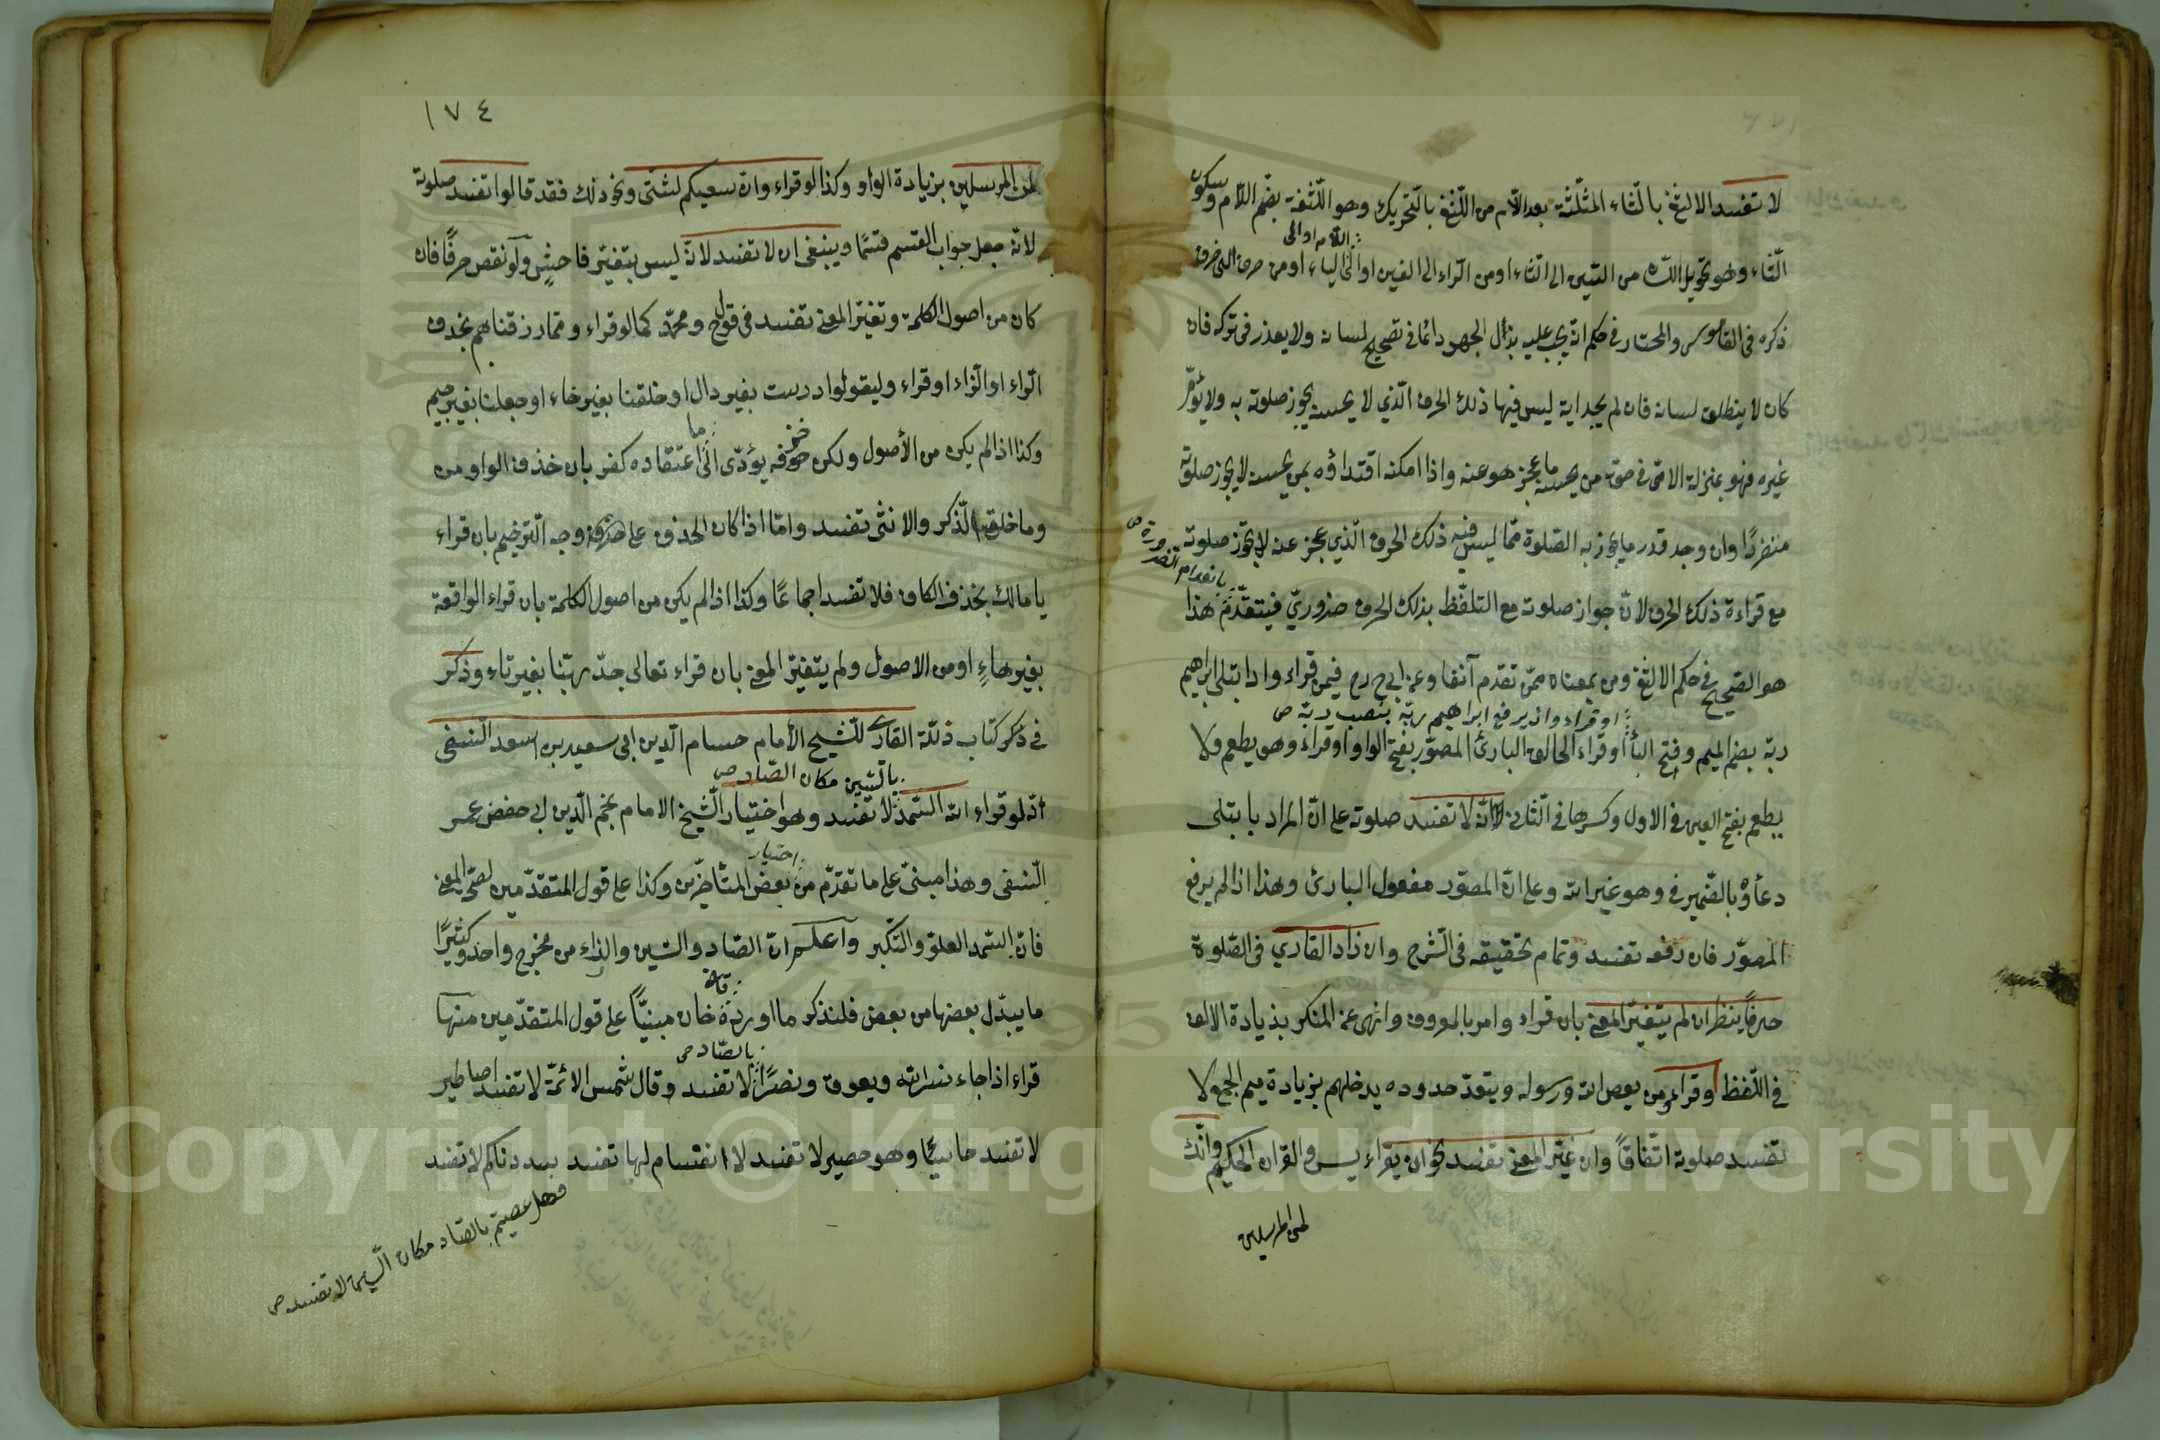 لا تفسد الالثغ بالثّاء المثلّثة بعد اللام من اللّثغ بالتّحريك وهو اللّثغة بضّم اللّام وسكون
الثّاء وهو تحويل اللسان من السّين الى الثّاء او من الرّاء الى الغين او اللام او الى الياء او من حرف الى حرف
ذكره في القاموس والمختار في حكم انّه يجب عليه بذل الجهد دائما في تصحيح لسانه ولا يعذر في تركه فان
كان لا ينطلق لسانه فان لم يجد اية ليس فيها ذلك الحرف الّذي لا يحسنه يجوز صلوته به ولا يؤمّ
غيره فهو بمنزلة الامّى في حق من يحسنه ما عجز هو عنه واذا امكنه اقتداؤه بمن يحسنه لا يجوز صلوته
منفردًا وان وجد قدر ما يجوز به الصّلوة ممّا ليس فيه ذلك الحرف الّذي عجز عنه لا يجوز صلوته
بانعدام الضرورة صح
مع قراءة ذلك الحرف لانّ جواز صلوته مع التلفّظ بذلك الحرف ضروريّ فينعدم هذا
هو الصّحيح في حكم الالثغ ومن بمعناه ممّن تقدم آنفا وعن ابي ح رح فيمن قراء واذ ابتلى ابراهيم
او قراء وانذير فع ابراهيم ربّه بنصب ربّه صح
ربّه بضم الميم وفتح الباء او قراء الخالق البارئ المصوّر بفتح الواو او قراء وهو يطعم ولا
يطعم بفتح العين في الاول وكسرها في الثّاني لانّه لا تفسد صلوته على انّ المراد بابتلى
دعاؤه بالضّمير في وهو غير الله وعلى انّ المصوّر مفعول البارئ وهذا اذا لم يرفع
المصوّر فان رفعه تفسد وتمام تحقيقه في الشّرح وان زاد القاري في الصّلوة
حرفًا ينظر ان لم يتغيّر المعنى بان قراء وامر بالمعروف وانهى عن المنكر بزيادة الالف
في اللّفظ او قراء ومن يعص الله ورسوله ويتعدّ حدوده يدخلهم بزيادة ميم الجمع ولا
تفسد صلوته اتّفاقًا وان غيّر المعنى تفسد نحو ان يقراء يس والقرآن الحكيم وانّك
لمن المرسلين
١٧٤
لمن المرسلين بزيادة الواو وكذا لو قراء وان سعيكم لشتّى ونحو ذلك فقد قالوا تفسد صلوته
لانّه جعل جواب القسم قسمًا وينبغى ان لا تفسد لانّه ليس بتغيّر فاحشٍ ولو نقص حرفًا فان
كان من اصول الكلمة وتغيّر المعنى تفسد في قول ح ومحمّد كما لو قراء وممّا رزقناهم بحذف
الرّاء او الزّاء او قراء وليقولوا درست بغير دال او خلقنا بغير خاء او جعلنا بغير جيم
وكذا اذا لم يكن من الأصول ولكن حذفه يؤدّى الى ما اعتقاده كفر بان حذف الواو من
وما خلق الذّكر والانثى تفسد وامّا اذا كان الحذف على وجه التّرخيم بان قراء
يا مالك بحذف الكاف فلا تفسد اجماعًا وكذا اذا لم يكن من اصول الكلمة بان قراء الواقعة
بغير هاءٍ او من الاصول ولم يتغيّر المعنى بان قراء تعالى جدّ ربّنا بغير تاء وذكر
في ذكر كتاب ذلّة القارى للشيخ الأمام حسام الدّين ابى سعيد بن اسعد النّسفى
بالسّين مكان الصّاد صح
انّه لو قراء الله السّمد لا تفسد وهو اختيار الشّيخ الامام نجم الدّين ابى حفص عمر
النّسفى وهذا مبنىّ على ما تقدّم من اختيار بعض المتأخّرين وكذا على قول المتقدّمين لصحّة المعنى
فانّ السّمد العلوّ والتّكبر واعلم انّ الصّاد والسّين والزّاء من مخرج واحد وكثيرًا
ما يبدّل بعضها من بعض فلنذكر ما اورده قاضى خان مبنيًّا على قول المتقدّمين منها
قراء اذا جاء نسر الله ويعوق ونصرًا بالصّاد صح لا تفسد وقال شمس الائمّة لا تفسد اصاطير
لا تفسد خاسيًا وهو حصير لا تفسد لا انفسام لها تفسد سددناكم لا تفسد
وهل عصيتم بالصّاد مكان السّين لا تفسد صح
Copyright © King Saud University
1957